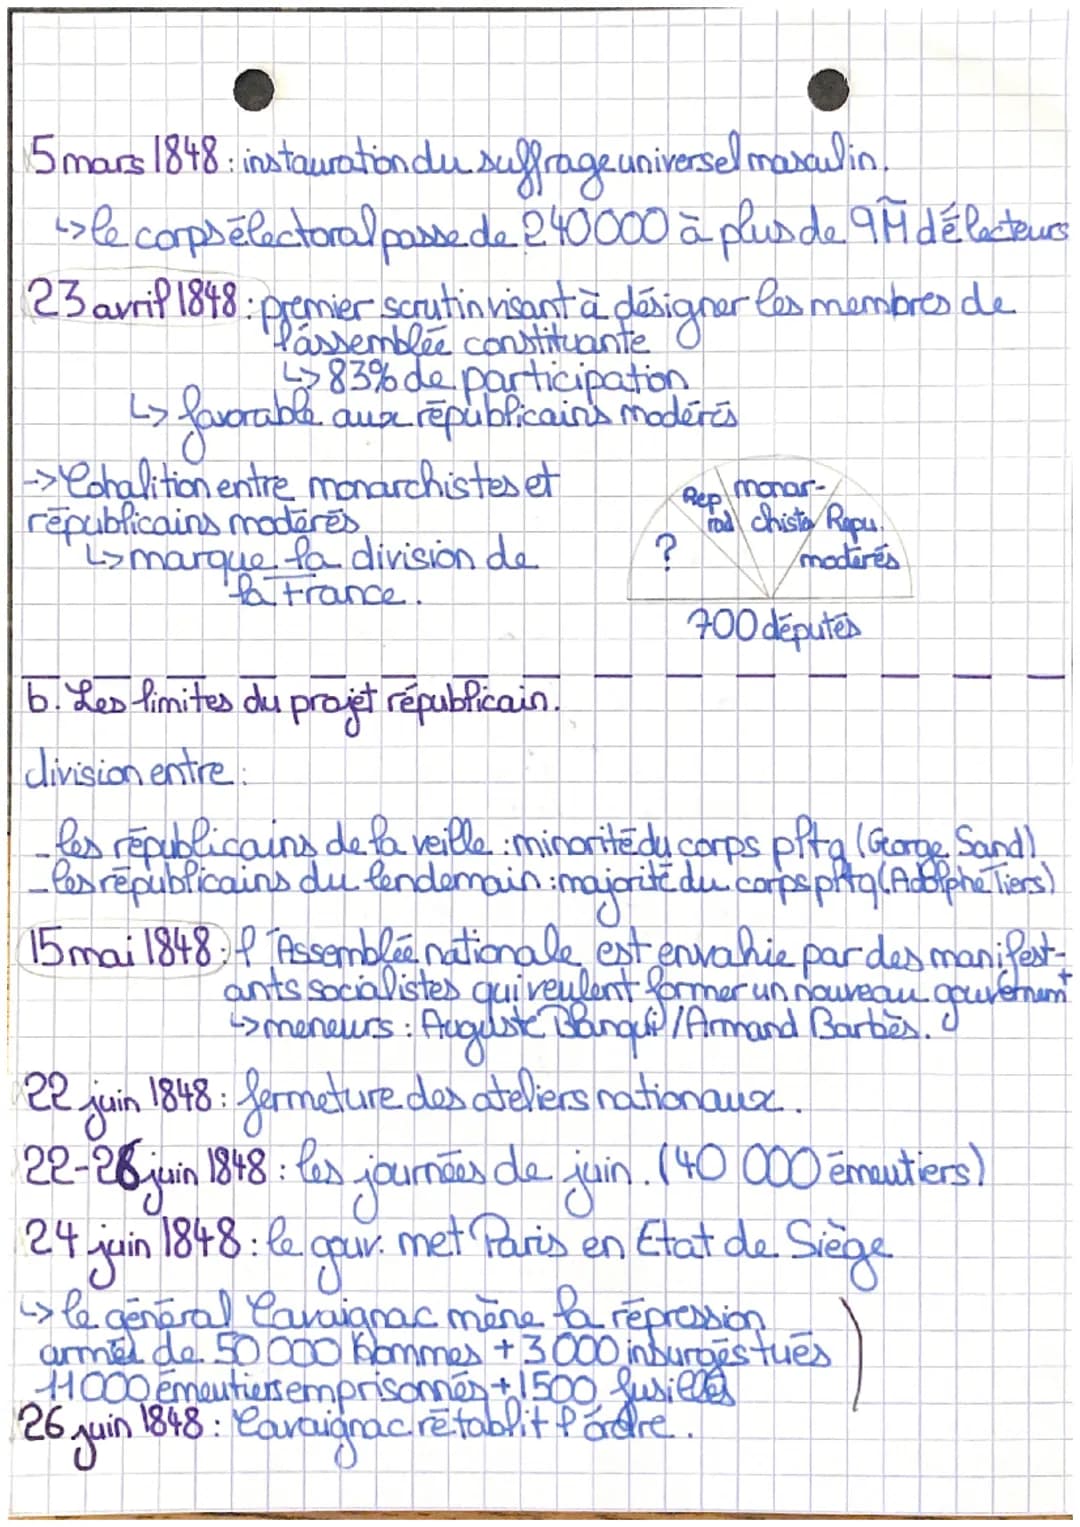 5 mars 1848 : instauration du suffrage universel masculin.
↳ le corps électoral passe de 240000 à plus de 9M d'électeurs
23 avril 1848 : premier scrutin visant à désigner les membres de
l'assemblée constituante
↳ 83% de participation
↳ favorable aux républicains modérés
→ Cohalition entre monarchistes et
républicains modérés
↳ marque la division de
la France.
?
Rep
rad
monar-
chiste
Repu.
modérés
700 députés
b. Les limites du projet républicain.
division entre :
- les républicains de la veille : minorité du corps pltq (George Sand)
- les républicains du lendemain : majorité du corps pltq (Adolphe Tiers)
15 mai 1848 : l'Assemblée nationale est envahie par des manifest-
ants socialistes qui veulent former un nouveau gouvernemt
↳ meneurs : Auguste Blanqui / Armand Barbès.
22 juin 1848 : fermeture des ateliers nationaux.
22-26 juin 1848 : les journées de juin. (40 000 émeutiers)
24 juin 1848 : le gouv. met Paris en Etat de Siège
↳ le général Cavaignac mène la répression
armée de 50 000 hommes + 3000 insurgés tués
11000 émeutiers emprisonnés + 1500 fusillés
26 juin 1848 : Cavaignac rétablit l'ordre.